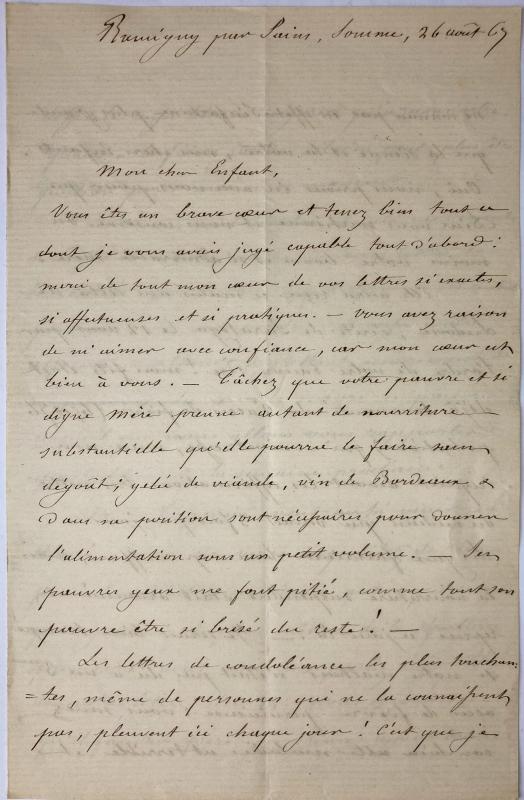 Remigny par Sains, Somme, 26 août 67
Mon cher Enfant,
Vous êtes un brave cœur et tenez bien tout ce
dont je vous avais jugé capable tout d'abord :
merci de tout mon cœur de vos lettres si exactes,
si affectueuses et si pratiques. — Vous avez raison
de m'aimer avec confiance, car mon cœur est
bien à vous. — Tâchez que votre pauvre et si
digne Mère prenne autant de nourriture
substantielle qu'elle pourra le faire sans
dégoût ; gelée de viande, vin de Bordeaux &
Dans sa position sont nécessaires pour donner
l'alimentation sous un petit volume. — Ses
pauvres yeux me font pitié, comme tout son
pauvre être si brisé du reste ! —
Les lettres de condoléance les plus touchan-
=tes, même de personnes qui ne la connaissent
pas, pleuvent ici chaque jour ! C'est que je